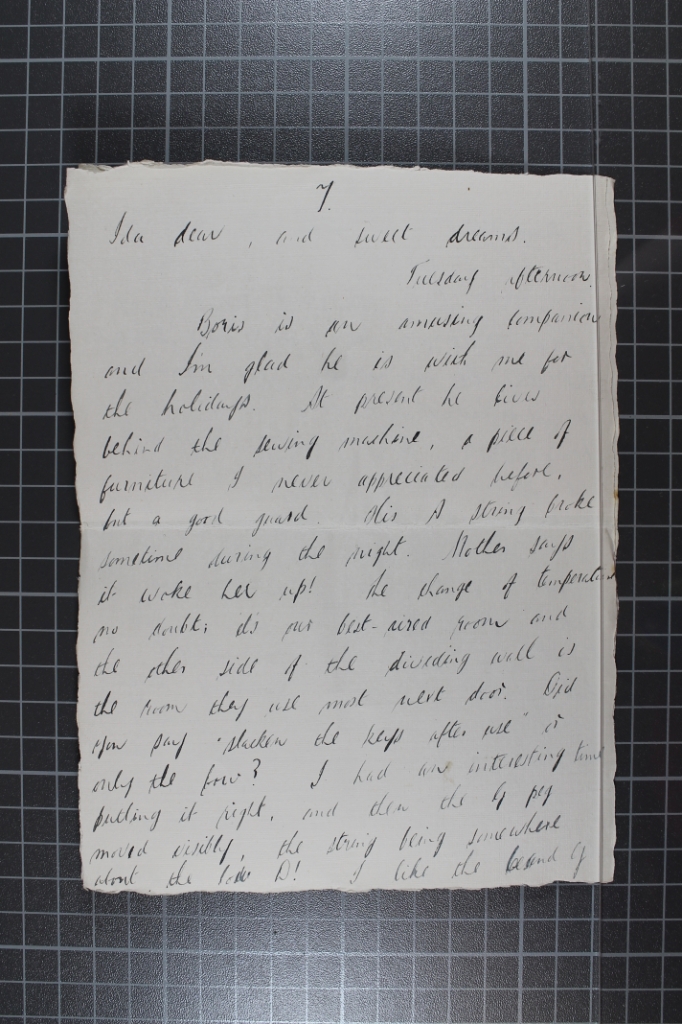 7.
Ida dear, and sweet dreams.
Tuesday afternoon.
Boris is an amusing companion
and I'm glad he is with me for
the holidays. At present he lives
behind the sewing machine, a piece of
furniture I never appreciated before,
but a good guard. His A string broke
sometime during the night. Mother says
it woke her up! The change of temperature
no doubt; it's our best-aired room and
the other side of the dividing wall is
the room they use most next door. Did
you say "slacken the keys after use" or
only the bow? I had an interesting time
putting it right, and then the G peg
moved visibly, the string being somewhere
about the low D! I like the sound of